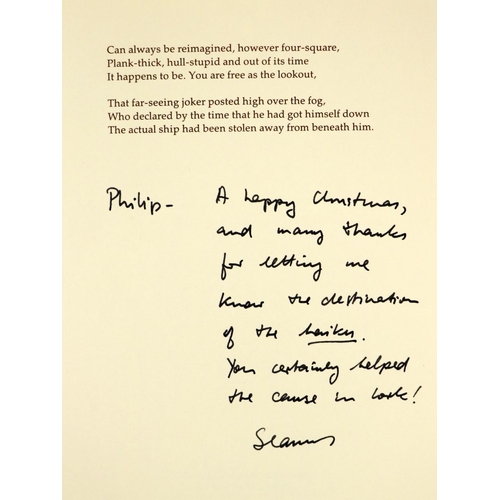 Can always be reimagined, however four-square,
Plank-thick, hull-stupid and out of its time
It happens to be. You are free as the lookout,
That far-seeing joker posted high over the fog,
Who declared by the time that he had got himself down
The actual ship had been stolen away from beneath him.
Philip - A happy Christmas,
and many thanks
for letting me
know the destination
of the haiku.
You certainly helped
the cause in Cork!
Seamus